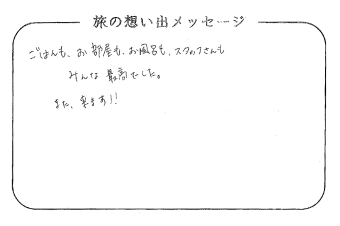 旅の想い出メッセージ
ごはんも、お部屋も、お風呂も、スタッフさんも
みんな最高でした。
また、来ます!!